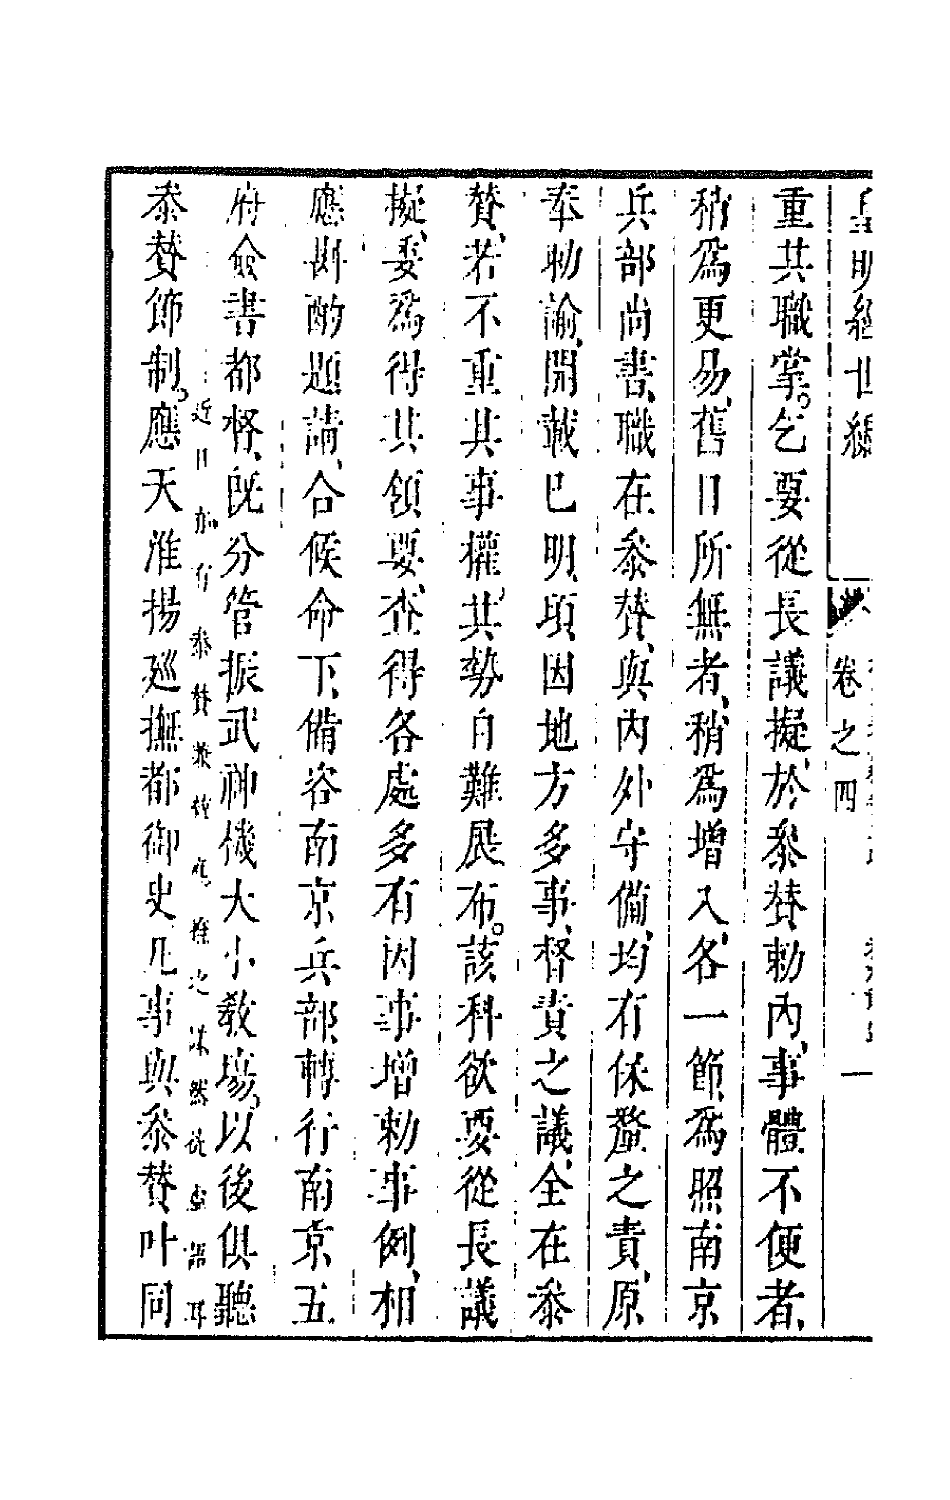 皇明經世編
卷之四
一
重其職掌。乞要從長議擬、於叅贊勅內、事體不便者、
稍爲更易、舊日所無者、稍爲增入、各一節、爲照南京
兵部尚書、職在叅贊、與內外守備、均有保釐之責、原
奉勅諭、開載已明、頃因地方多事、督責之議、全在叅
贊、若不重其事權、其勢自難展布。該科欲要從長議
擬、委爲得其領要、查得各處多有因事增勅事例、相
應斟酌題請、合候命下、備咨南京兵部、轉行南京五
府僉書都督、既分管振武神機大小教場、以後俱聽
近日加有叅贊兼
之
然
虛
耳
叅贊節制。應天淮揚廵撫都御史凡事與叅贊叶同